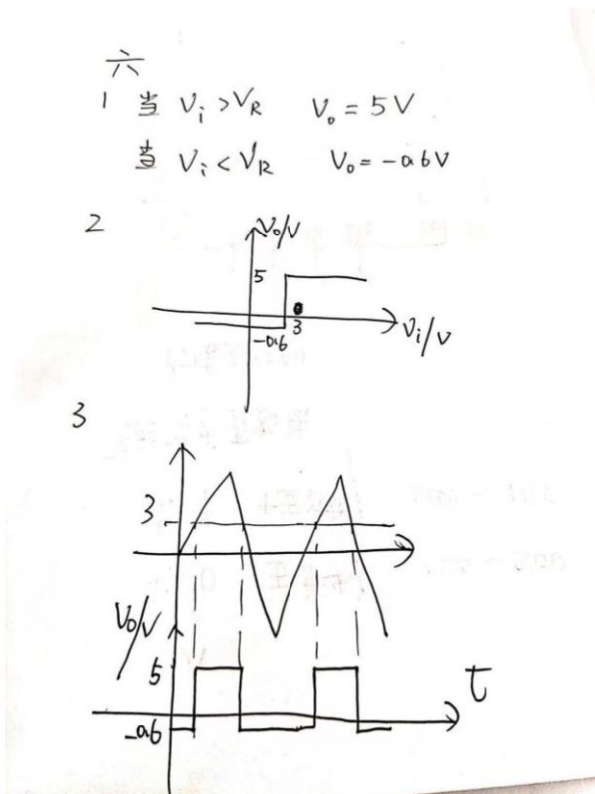 六
1 当 Vi >VR Vo = 5V
当 Vi < VR Vo = -0.6V
2
Vo/V
5
3
-0.6
Vi/V
3
3
Vo/V
5
t
-0.6